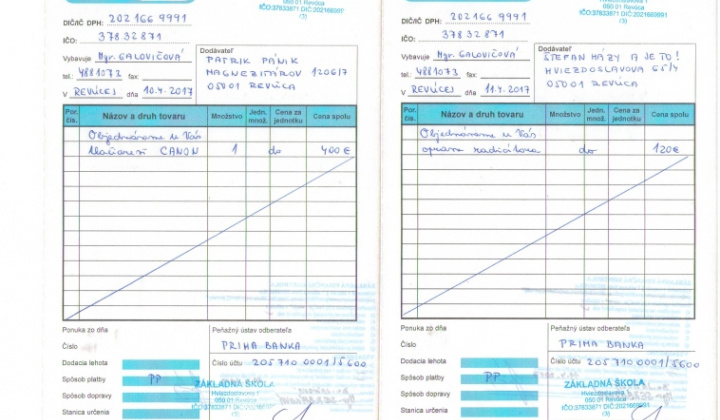 Hviezdoslavova 1
050 01 Revúca
IČO:37832871 DIČ:2021669991
(3)
DIČ/IČ DPH: 202 166 9991
IČO: 37832871
Vybavuje Mgr. GALOVIČOVÁ
tel.: 4881073 fax:
V REVÚCEJ dňa 10.4.2017
Dodávateľ
PATRIK PÁNIK
MAGNEZITÁROV 1206/7
05001 REVÚCA
Por. čís.
Názov a druh tovaru
Množstvo
Jedn. množ.
Cena za jednotku
Cena spolu
Objednávame u Vás
tlačiareň CANON 1 do 400 €
Ponuka zo dňa
Číslo
Dodacia lehota
Spôsob platby PP
Spôsob dopravy
Stanica určenia
Peňažný ústav odberateľa
PRIMA BANKA
Číslo účtu 205710 0001/5600
ZÁKLADNÁ ŠKOLA
Hviezdoslavova 1
050 01 Revúca
IČO:37832871 DIČ:2021669991
(3)
Hviezdoslavova 1
050 01 Revúca
IČO:37832871 DIČ:2021669991
(3)
DIČ/IČ DPH: 202 166 9991
IČO: 37832871
Vybavuje Mgr. GALOVIČOVÁ
tel.: 4881073 fax
V REVÚCEJ dňa 11.4.2017
Dodávateľ
ŠTEFAN HÁZY A JE TO!
HVIEZDOSLAVOVA 65/4
05001 REVÚCA
Por. čís.
Názov a druh tovaru
Množstvo
Jedn. množ.
Cena za jednotku
Cena spolu
Objednávame u Vás
oprava radiátora do 120€
Ponuka zo dňa
Číslo
Dodacia lehota
Spôsob platby PP
Spôsob dopravy
Stanica určenia
Peňažný ústav odberateľa
PRIMA BANKA
Číslo účtu 205 710 0001/5600
ZÁKLADNÁ ŠKOLA
Hviezdoslavova 1
050 01 Revúca
IČO:37832871 DIČ:2021669991
(3)